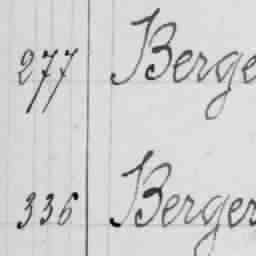 277 Berge
336 Berger